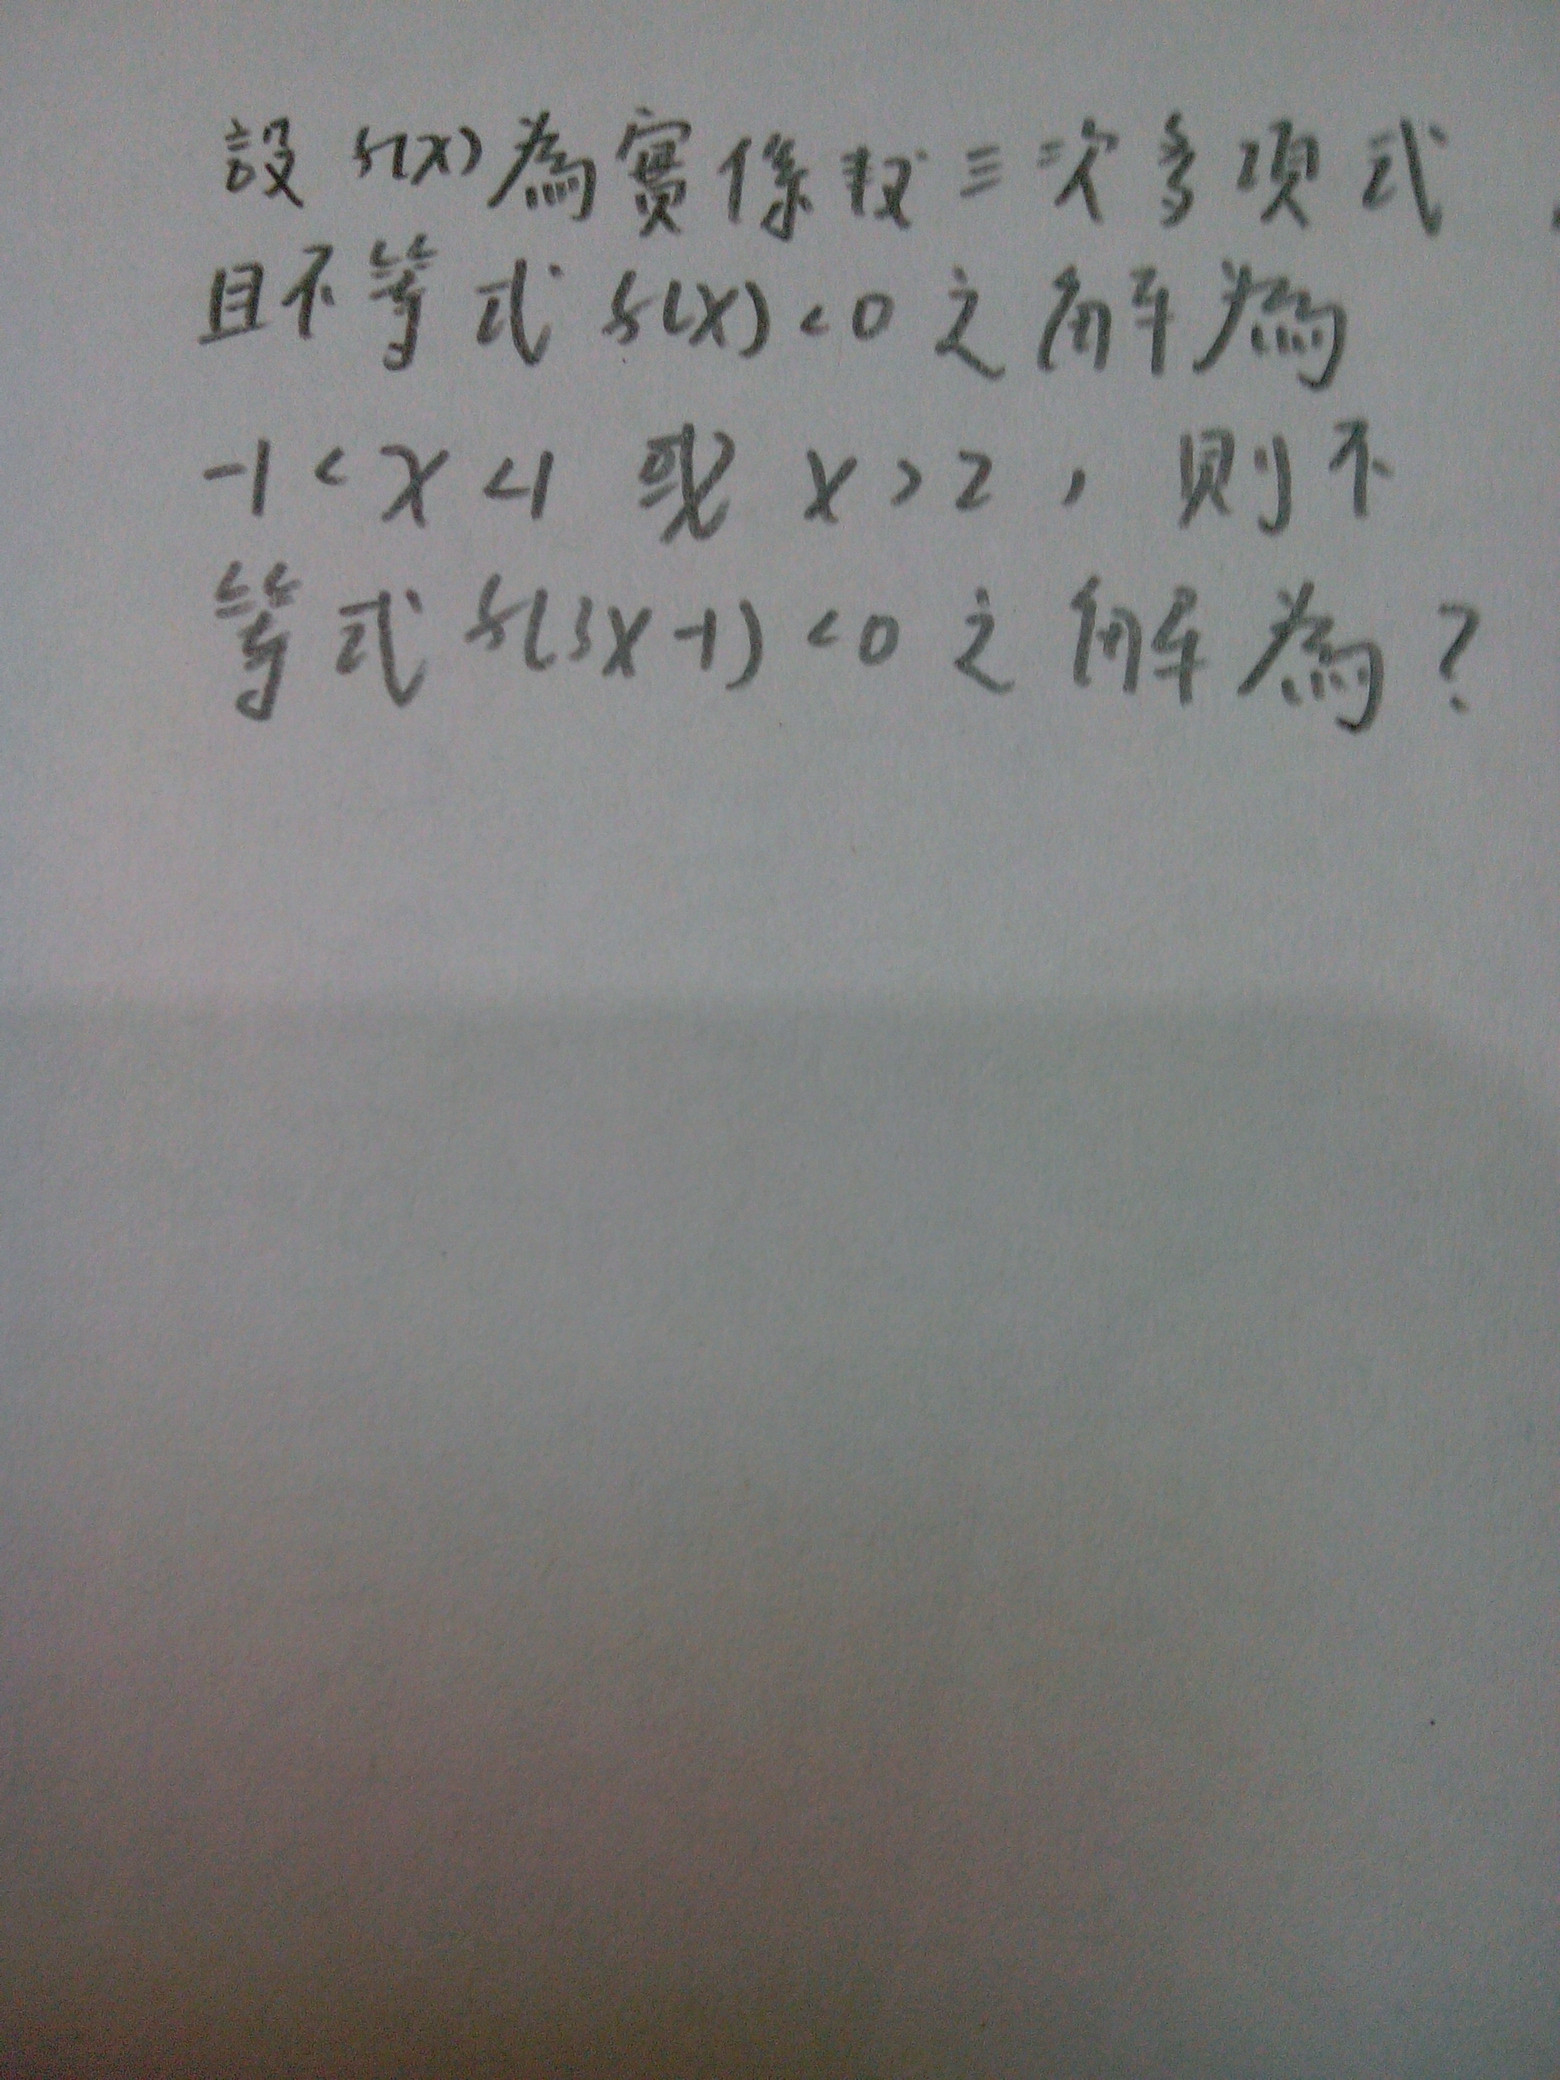 設 f(x) 為實係数三次多項式,
且不等式 f(x) < 0 之解為
-1 < x < 1 或 x > 2 , 則不
等式 f(3x-1) < 0 之解為?